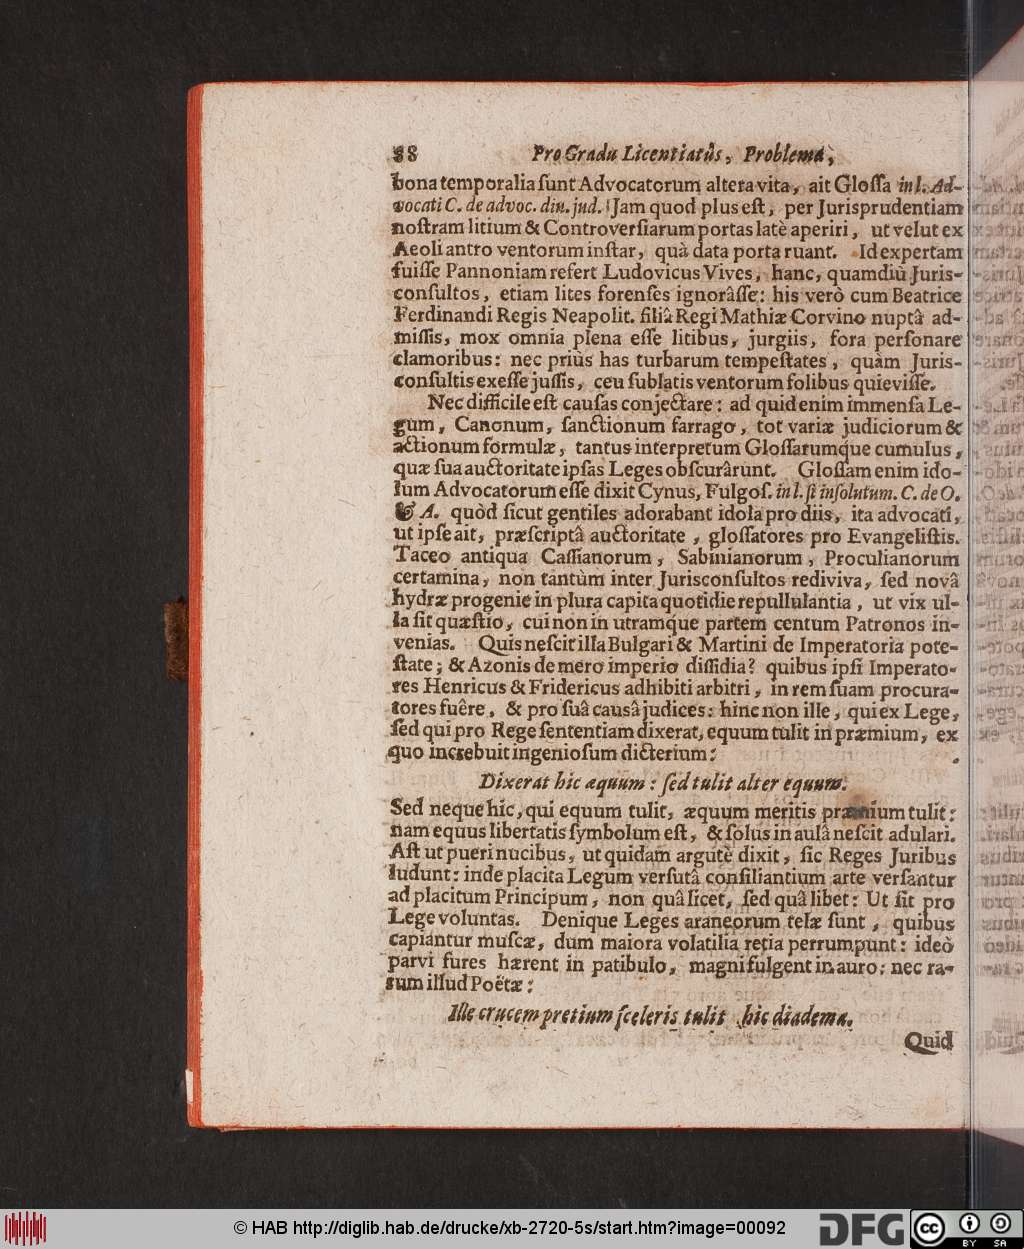 88 Pro Gradu Licentiatûs, Problema,
bona temporalia ſunt Advocatorum altera vita, ait Gloſſa in l. Ad-
vocati C. de advoc. div. jud. Jam quod plus eſt, per Jurisprudentiam
noſtram litium & Controverſiarum portas latè aperiri, ut velut ex
Aeoli antro ventorum inſtar, quà data porta ruant. Id expertam
fuiſſe Pannoniam refert Ludovicus Vives, hanc, quamdiù Juris-
conſultos, etiam lites forenſes ignorâſſe: his verò cum Beatrice
Ferdinandi Regis Neapolit. filiâ Regi Mathiæ Corvino nuptâ ad-
miſſis, mox omnia plena eſſe litibus, jurgiis, fora perſonare
clamoribus: nec priùs has turbarum tempeſtates, quàm Juris-
conſultis exeſſe juſſis, ceu ſublatis ventorum folibus quieviſſe.
Nec difficile eſt cauſas conjectare: ad quid enim immenſa Le-
gum, Canonum, ſanctionum farrago, tot variæ judiciorum &
actionum formulæ, tantus interpretum Gloſſarumque cumulus,
quæ ſua auctoritate ipſas Leges obſcurârunt. Gloſſam enim ido-
lum Advocatorum eſſe dixit Cynus, Fulgoſ. in l. ſi inſolutum. C. de O.
& A. quòd ſicut gentiles adorabant idola pro diis, ita advocati,
ut ipſe ait, præſcriptâ auctoritate, gloſſatores pro Evangeliſtis.
Taceo antiqua Caſſianorum, Sabinianorum, Proculianorum
certamina, non tantùm inter Jurisconſultos rediviva, ſed novâ
hydræ progenie in plura capita quotidie repullulantia, ut vix ul-
la ſit quæſtio, cui non in utramque partem centum Patronos in-
venias. Quis neſcit illa Bulgari & Martini de Imperatoria pote-
ſtate; & Azonis de mero imperio diſſidia? quibus ipſi Imperato-
res Henricus & Fridericus adhibiti arbitri, in rem ſuam procura-
tores fuêre, & pro ſuâ causâ judices: hinc non ille, qui ex Lege,
ſed qui pro Rege ſententiam dixerat, equum tulit in præmium, ex
quo increbuit ingenioſum dicterium:
Dixerat hic æquum: ſed tulit alter equum.
Sed neque hic, qui equum tulit, æquum meritis præmium tulit:
nam equus libertatis ſymbolum eſt, & ſolus in aulâ neſcit adulari.
Aſt ut pueri nucibus, ut quidam argutè dixit, ſic Reges Juribus
ludunt: inde placita Legum verſutâ conſiliantium arte verſantur
ad placitum Principum, non quâ licet, ſed quâ libet: Ut ſit pro
Lege voluntas. Denique Leges araneorum telæ ſunt, quibus
capiantur muſcæ, dum maiora volatilia retia perrumpunt: ideò
parvi fures hærent in patibulo, magni fulgent in auro: nec ra-
rum illud Poëtæ:
Ille crucem pretium ſceleris tulit hic diadema.
Quid
© HAB http://diglib.hab.de/drucke/xb-2720-5s/start.htm?image=00092 DFG cc BY SA